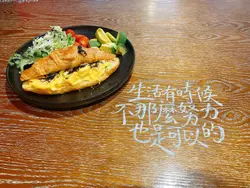 生活有時候
不那麼努力
也是可以的